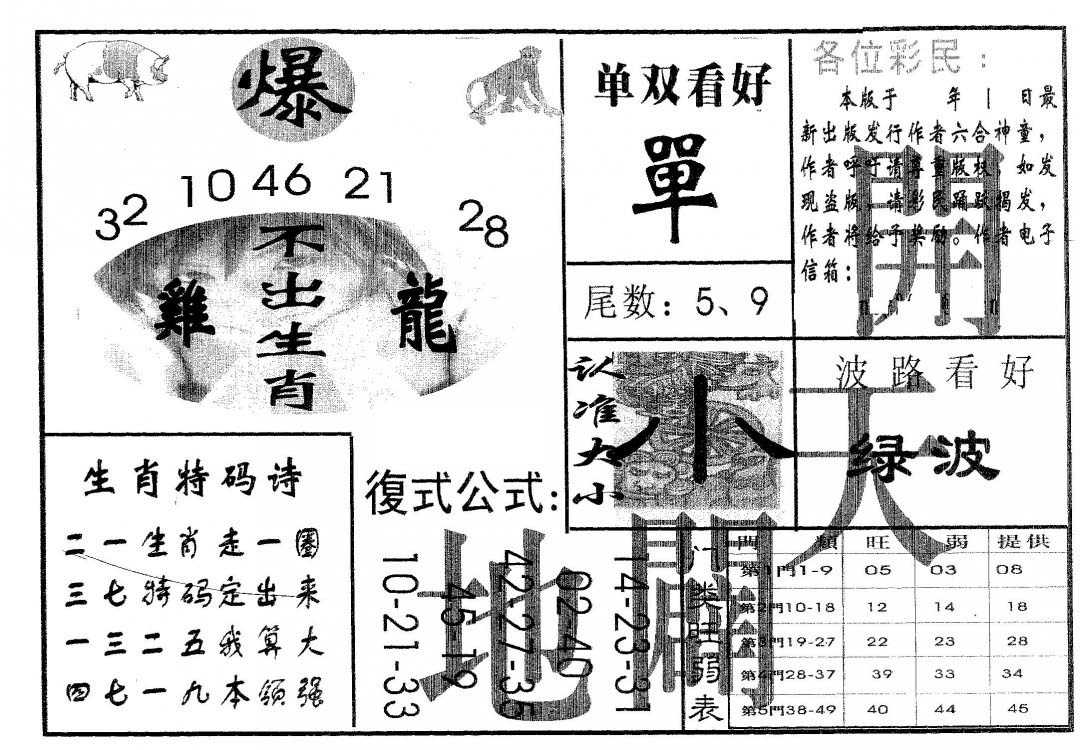 爆
32 10 46 21 28
不出生肖
雞
龍
单双看好
單
尾数：5、9
认准大小
小
各位彩民：
本版于 年 日最
新出版发行作者六合神童，
作者呼吁请尊重版权，如发
现盗版，请彩民踊跃揭发，
作者将给予奖励。作者电子
信箱：
波路看好
绿波
開天
地開
生肖特码诗
二一生肖走一圈
三七特码定出来
一三二五我算大
四七一九本领强
復式公式:
14-23-31
02-40
42-27-35
45-19
10-21-33
门类旺弱表
門 類 旺 弱 提供
第1門1-9 05 03 08
第2門10-18 12 14 18
第3門19-27 22 23 28
第4門28-37 39 33 34
第5門38-49 40 44 45